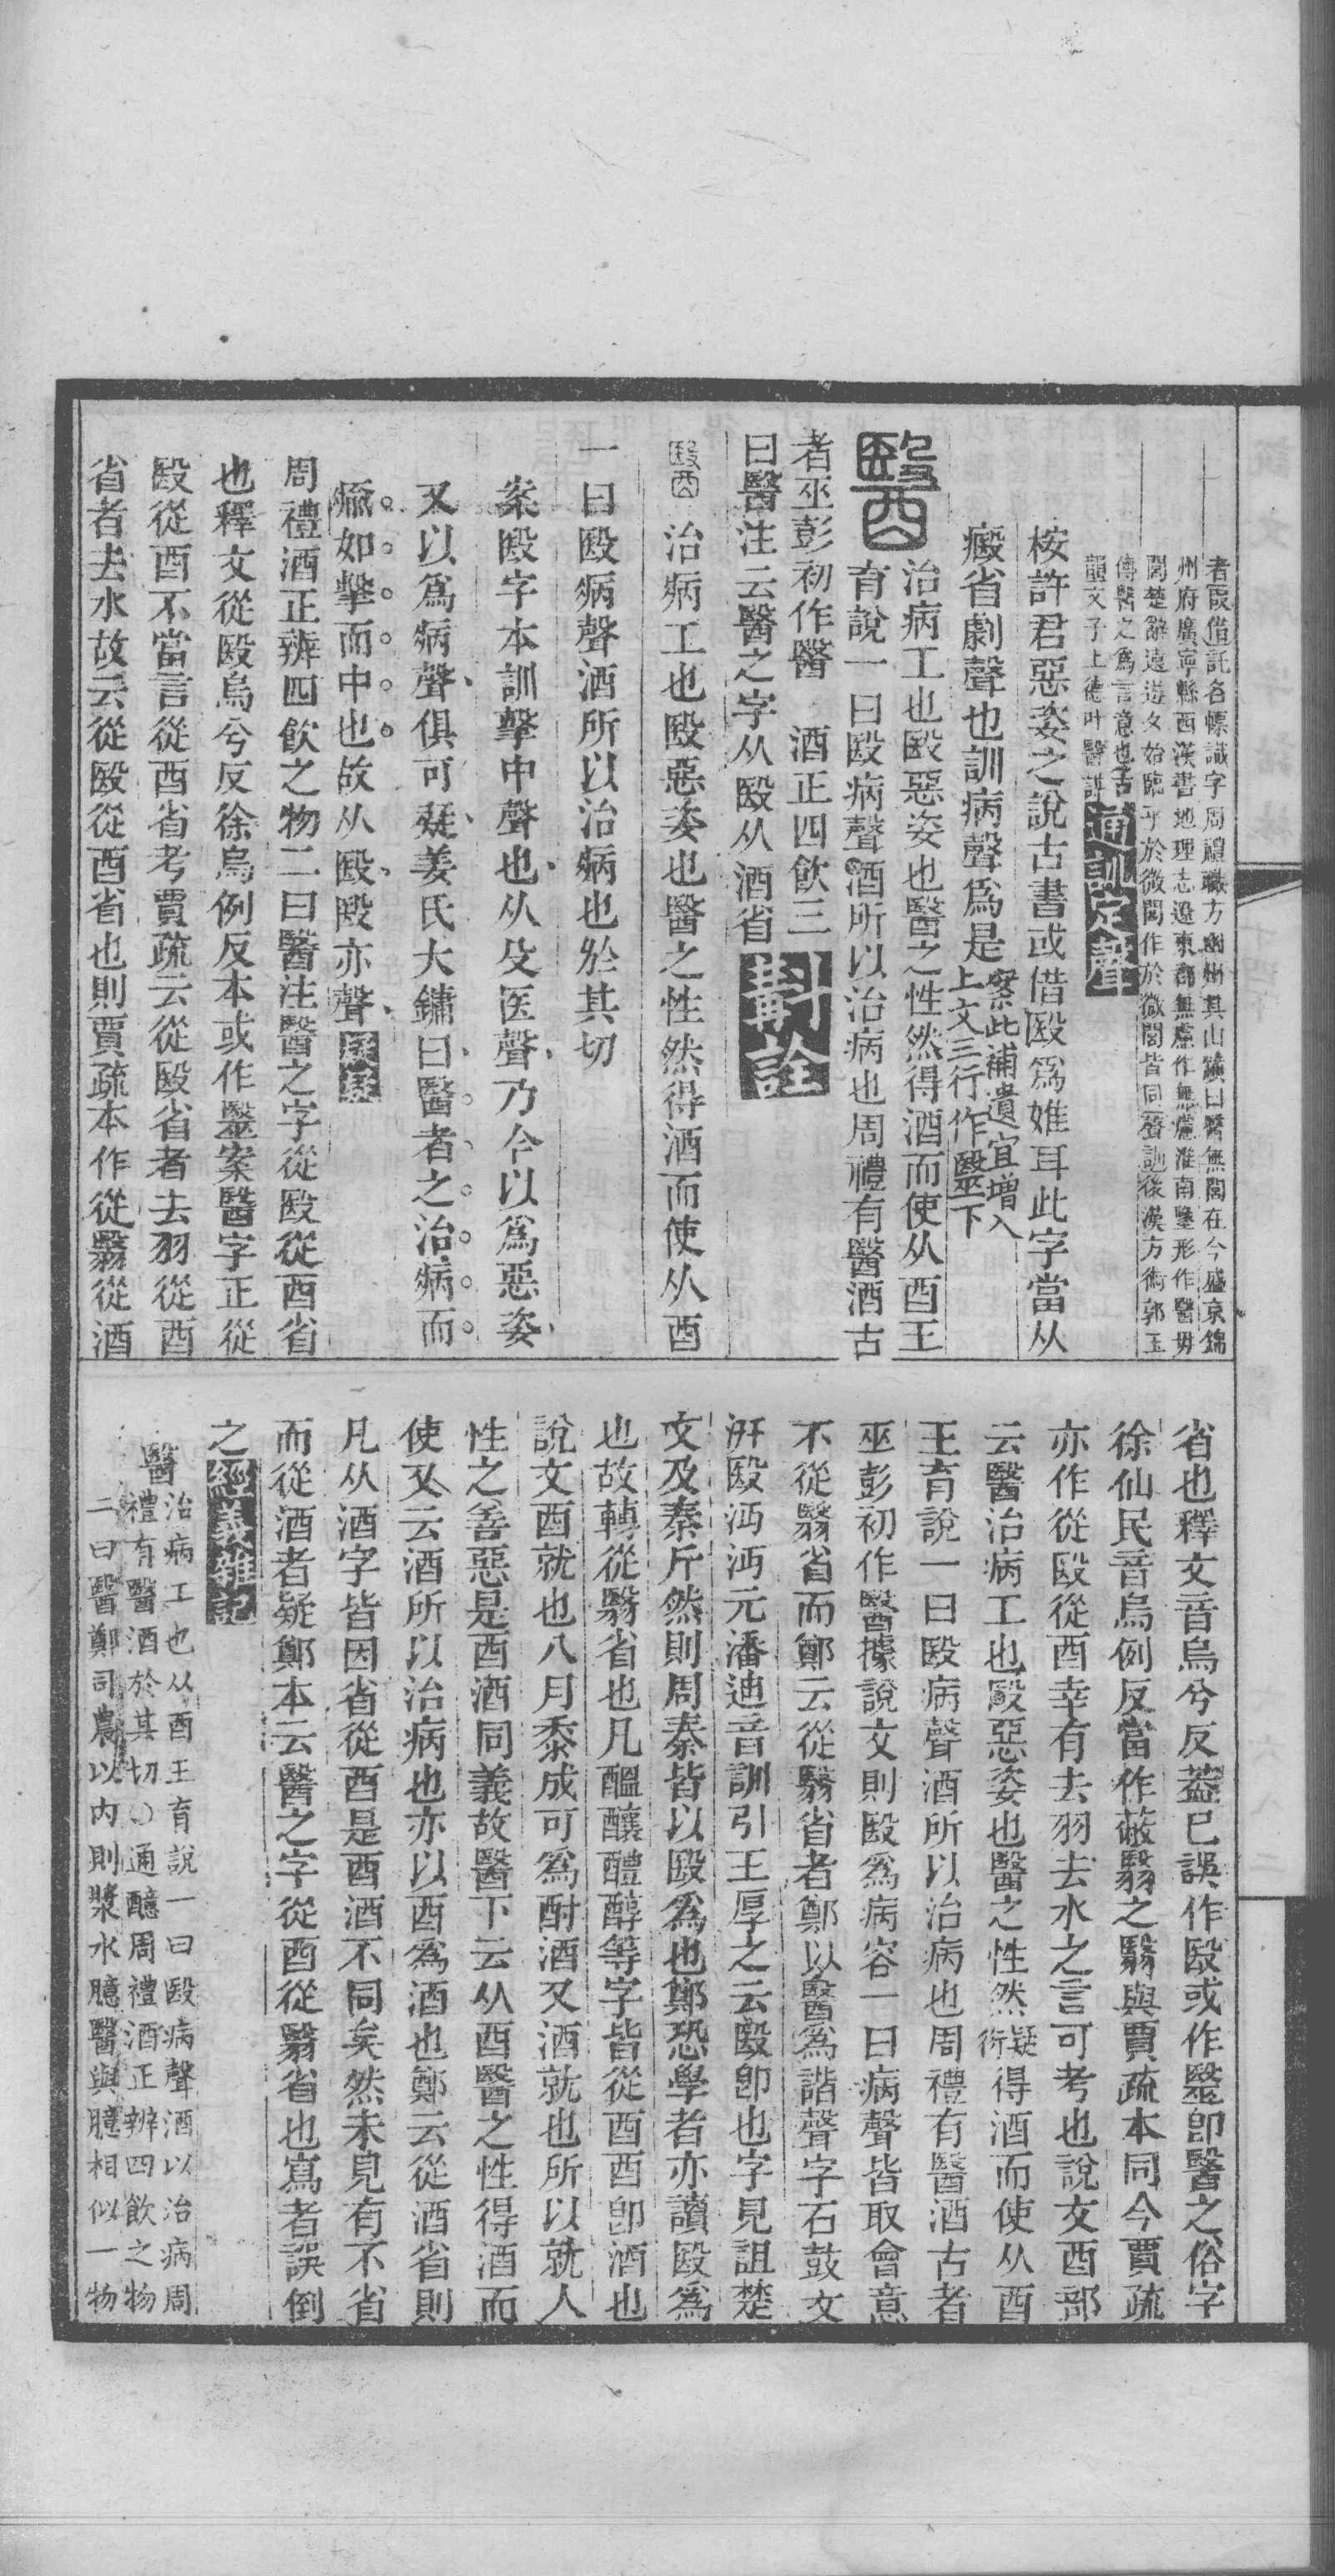 者叚借託名幖識字周禮職方幽州其山鎮曰醫無閭在今盛京錦
州府廣寧縣西漢書地理志遼東郡無慮作無慮淮南墬形作醫毋
閭楚辭遠遊夕始臨乎於微閭作於微閭皆同聲訓後漢方術郭玉
傳醫之為言意也古韻文子上德叶醫
通訓定聲
桉許君惡姿之說古書或借殹爲嫕耳此字當从
瘱省劇聲也訓病聲爲是案此補遺宜增入上文三行作毉下
醫
治病工也殹惡姿也醫之性然得酒而使从酉王
育說一曰殹病聲酒所以治病也周禮有醫酒古
者巫彭初作醫 酒正四飲三
曰醫注云醫之字从殹从酒省斠詮
醫 治病工也殹惡姿也醫之性然得酒而使从酉
一曰殹病聲酒所以治病也於其切
案殹字本訓擊中聲也从殳医聲乃今以爲惡姿
又以爲病聲俱可疑姜氏大鏞曰醫者之治病而
瘉如擊而中也故从殹殹亦聲
周禮酒正辨四飲之物二曰醫注醫之字從殹從酉省
也釋文從殹烏兮反徐烏例反本或作毉案醫字正從
殹從酉不當言從酉省考賈疏云從殹省者去羽從酉
省者去水故云從殹從酉省也則賈疏本作從翳從酒
省也釋文音烏兮反葢已誤作殹或作毉卽醫之俗字
徐仙民音烏例反當作蔽翳之翳與賈疏本同今賈疏
亦作從殹從酉幸有去羽去水之言可考也說文酉部
云醫治病工也殹惡姿也醫之性然疑衍得酒而使从酉
王育說一曰殹病聲酒所以治病也周禮有醫酒古者
巫彭初作醫據說文則殹爲病容一曰病聲皆取會意
不從翳省而鄭云從翳省者鄭以醫爲諧聲字石鼓文
汧殹沔沔元潘迪音訓引王厚之云殹卽也字見詛楚
文及秦斤然則周秦皆以殹爲也鄭恐學者亦讀殹爲
也故轉從翳省也凡醞釀醴醇等字皆從酉酉卽酒也
說文酉就也八月黍成可爲酎酒又酒就也所以就人
性之善惡是酉酒同義故醫下云从酉醫之性得酒而
使又云酒所以治病也亦以酉爲酒也鄭云從酒省則
凡从酒字皆因省從酉是酉酒不同矣然未見有不省
而從酒者疑鄭本云醫之字從酉從翳省也寫者誤倒
之經義雜記
醫
治病工也从酉王育說一曰殹病聲酒以治病周
禮有醫酒於其切○通醷周禮酒正辨四飲之物
二曰醫鄭司農以內則漿水臆醫與臆相似一物